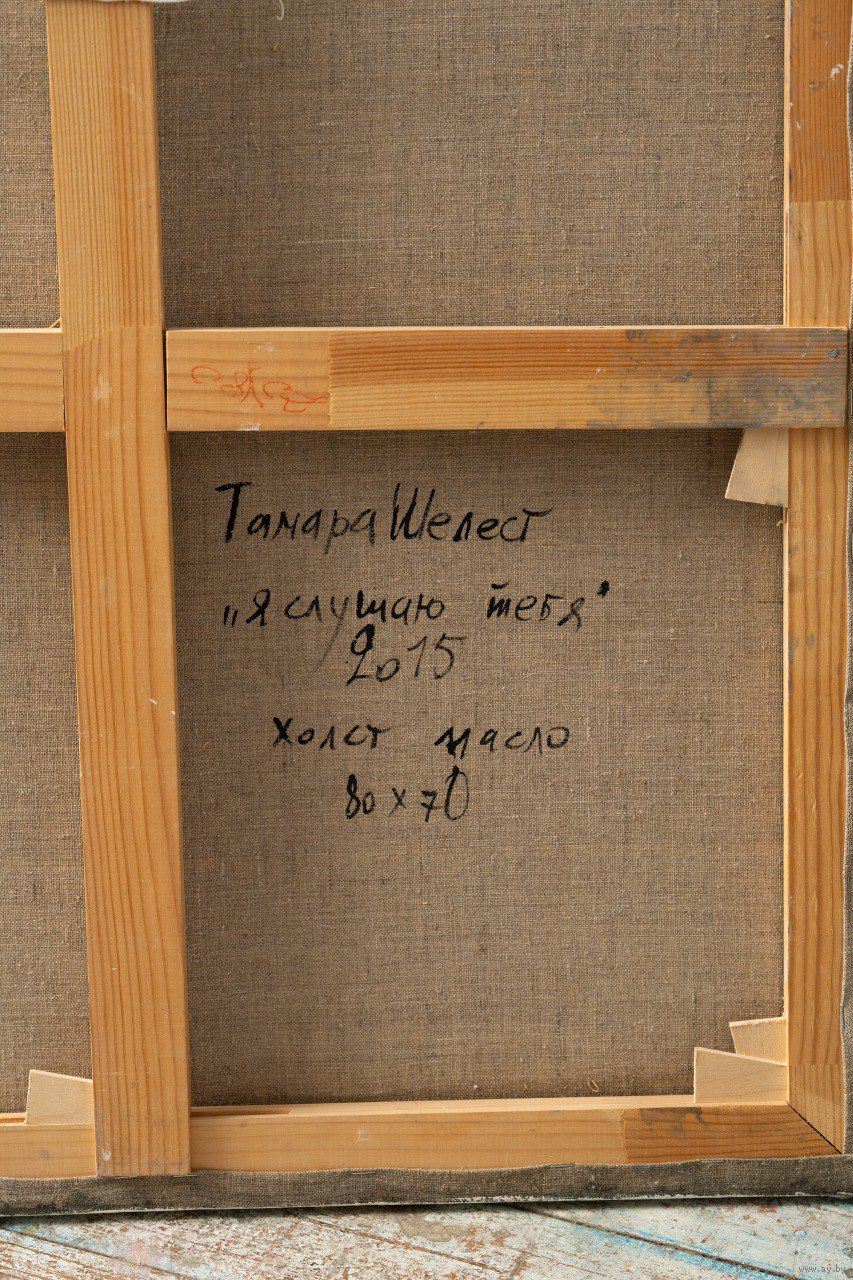 Тамара Шелест
„Я слушаю тебя"
2015
холст масло
80 х 70
www.ay.by